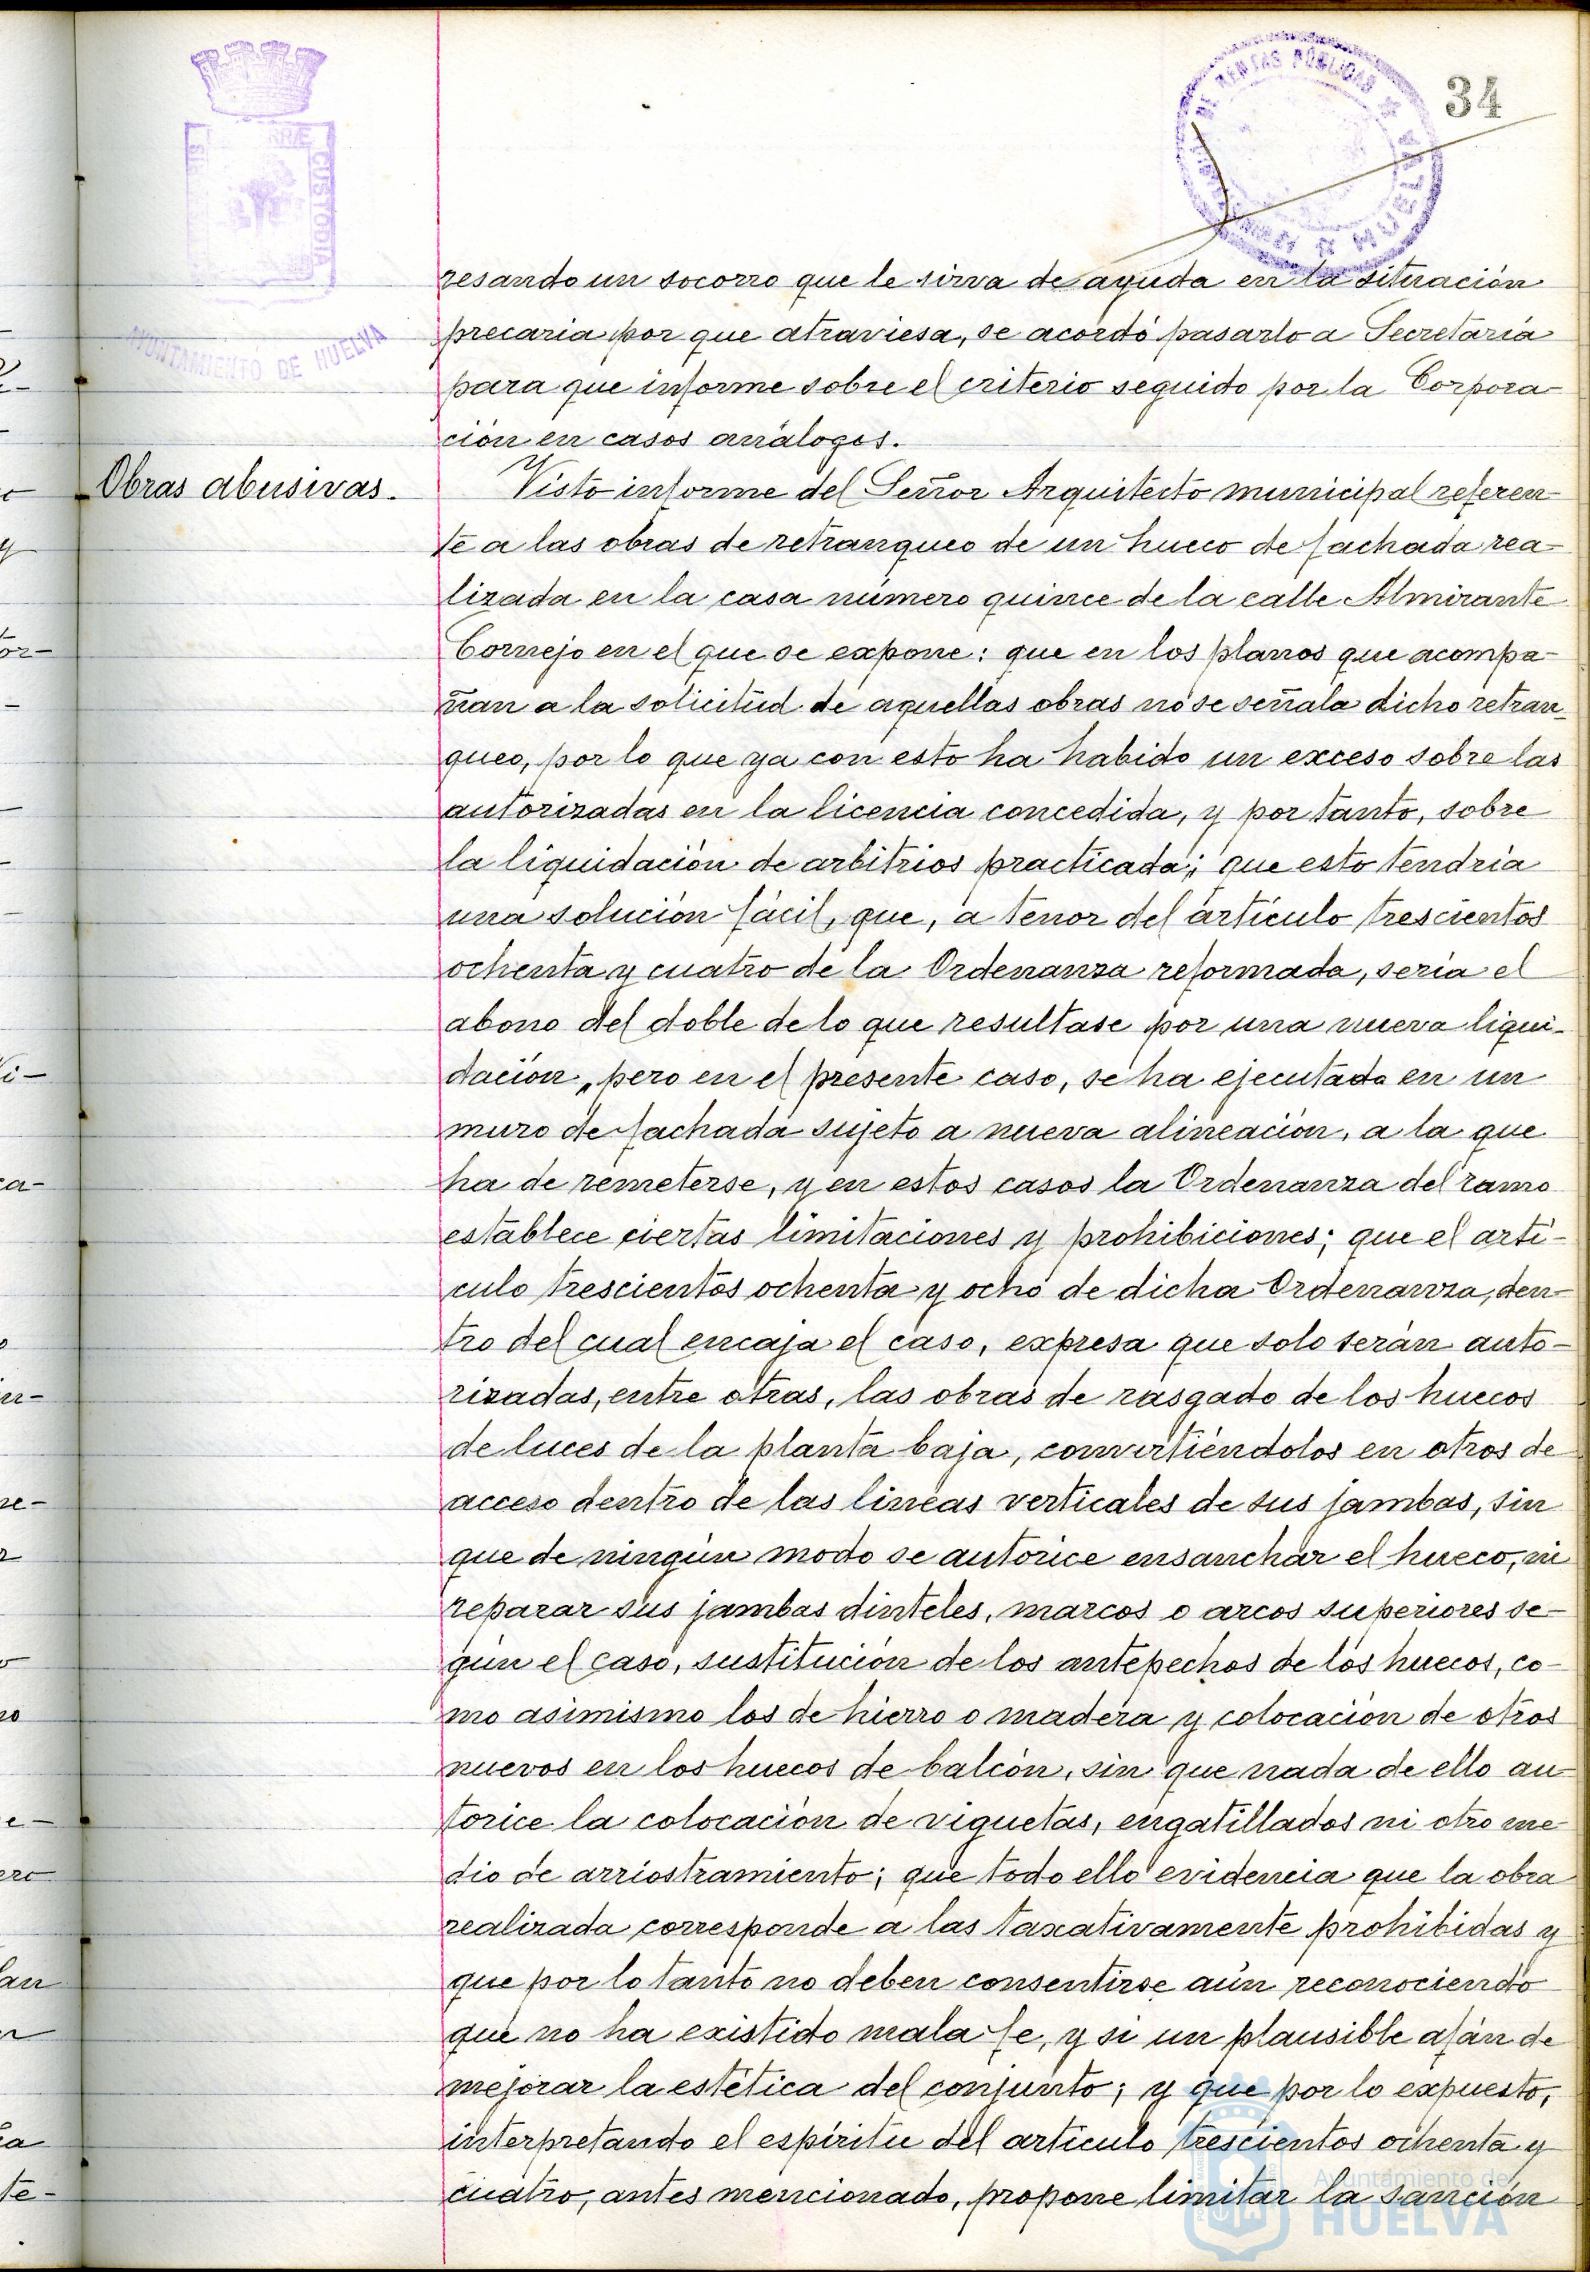 34
DE RENTAS PÚBLICAS
HUELVA
CUSTODIA
AYUNTAMIENTO DE HUELVA
resando un socorro que le sirva de ayuda en la situación
precaria por que atraviesa, se acordó pasarlo a Secretaría
para que informe sobre el criterio seguido por la Corpora-
ción en casos análogos.
Obras abusivas.
Visto informe del Señor Arquitecto municipal referen-
te a las obras de retranqueo de un hueco de fachada rea-
lizada en la casa número quince de la calle Almirante
Cornejo en el que se expone: que en los planos que acompa-
ñan a la solicitud de aquellas obras no se señala dicho retran-
queo, por lo que ya con esto ha habido un exceso sobre las
autorizadas en la licencia concedida, y por tanto, sobre
la liquidación de arbitrios practicada; que esto tendría
una solución fácil, que, a tenor del artículo trescientos
ochenta y cuatro de la Ordenanza reformada, sería el
abono del doble de lo que resultase por una nueva liqui-
dación, pero en el presente caso, se ha ejecutado en un
muro de fachada sujeto a nueva alineación, a la que
ha de remeterse, y en estos casos la Ordenanza del ramo
establece ciertas limitaciones y prohibiciones; que el artí-
culo trescientos ochenta y ocho de dicha Ordenanza, den-
tro del cual encaja el caso, expresa que solo serán auto-
rizadas, entre otras, las obras de rasgado de los huecos
de luces de la planta baja, convirtiéndolos en otros de
acceso dentro de las líneas verticales de sus jambas, sin
que de ningún modo se autorice ensanchar el hueco, ni
reparar sus jambas dinteles, marcos o arcos superiores se-
gún el caso, sustitución de los antepechos de los huecos, co-
mo asimismo los de hierro o madera y colocación de otros
nuevos en los huecos de balcón, sin que nada de ello au-
torice la colocación de viguetas, engatillados ni otro me-
dio de arriostramiento; que todo ello evidencia que la obra
realizada corresponde a las taxativamente prohibidas y
que por lo tanto no deben consentirse aún reconociendo
que no ha existido mala fe, y si un plausible afán de
mejorar la estética del conjunto; y que por lo expuesto,
interpretando el espíritu del artículo trescientos ochenta y
cuatro, antes mencionado, propone limitar la sanción
Ayuntamiento de
HUELVA